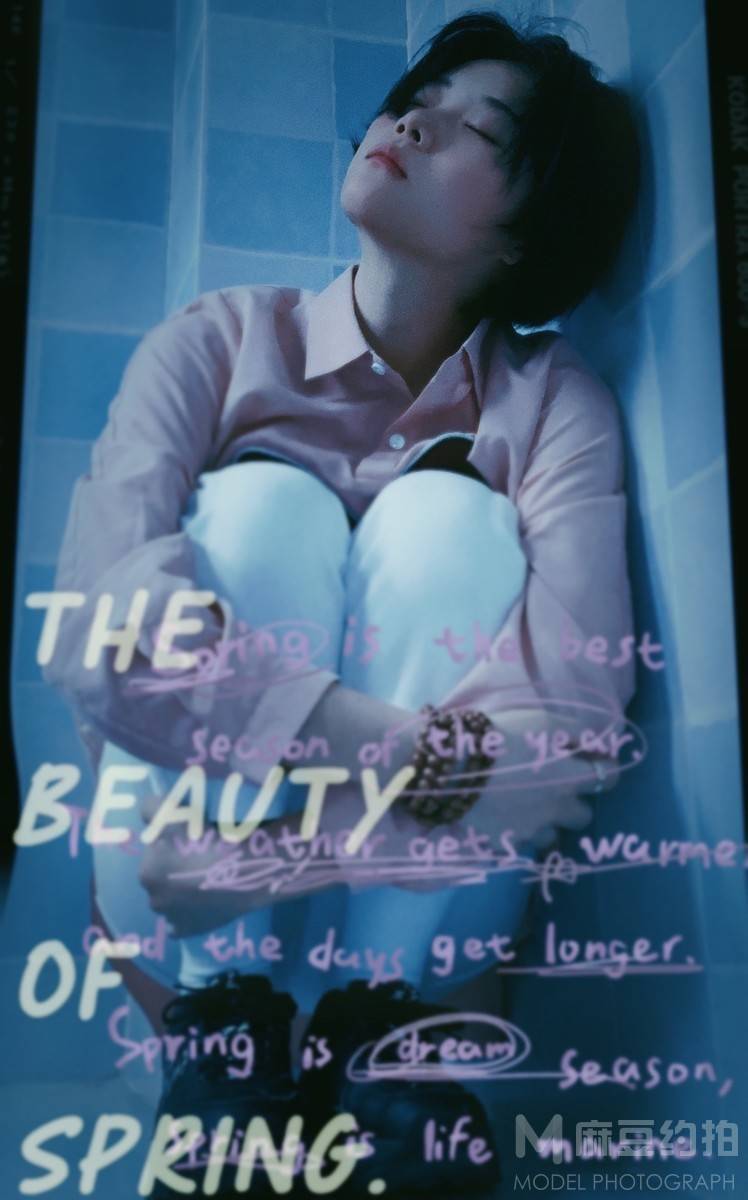 THE
BEAUTY
OF
SPRING.
Spring is the best
season of the year.
The weather gets warme
and the days get longer.
Spring is dream season,
Spring is life
KODAK PORTRA
M 麻豆约拍
MODEL PHOTOGRAPH